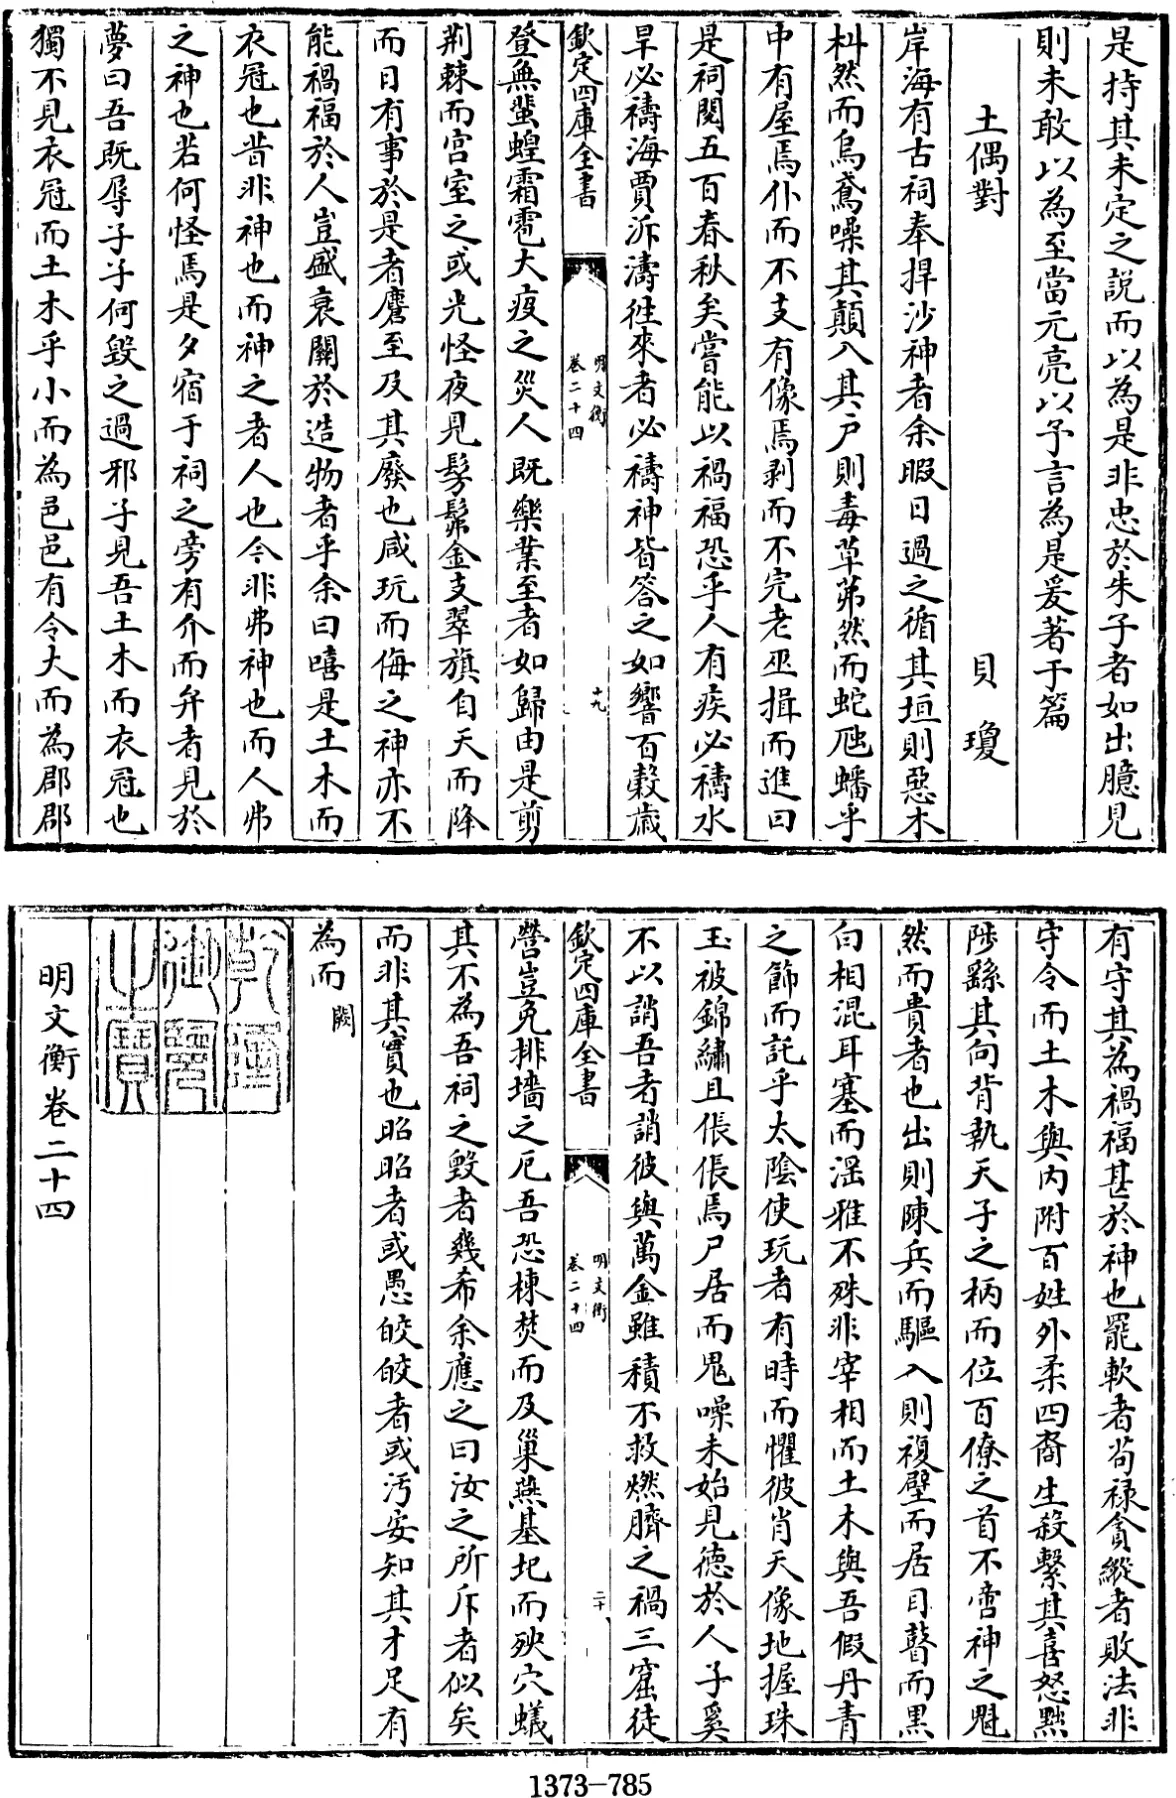 是持其未定之説而以為是非忠於朱子者如出臆見
則未敢以為至當元亮以予言為是爰著于篇
土偶對
貝瓊
岸海有古祠奉捍沙神者余暇日過之循其垣則惡木
朻然而烏鳶噪其顛入其戸則毒草茀然而蛇虺蟠乎
中有屋焉仆而不支有像焉剥而不完老巫揖而進曰
是祠閱五百春秋矣嘗能以禍福恐乎人有疾必禱水
旱必禱海賈泝濤徃來者必禱神皆答之如響百穀歲
欽定四庫全書
明文衡
卷二十四
十九
登無蜚蝗霜雹大疫之災人既樂業至者如歸由是剪
荆棘而宫室之或光怪夜見髣髴金支翠旗自天而降
而日有事於是者麕至及其廢也咸玩而侮之神亦不
能禍福於人豈盛衰關於造物者乎余曰嘻是土木而
衣冠也昔非神也而神之者人也今非弗神也而人弗
之神也若何怪焉是夕宿于祠之旁有介而弁者見於
夢曰吾既辱子子何毁之過邪子見吾土木而衣冠也
獨不見衣冠而土木乎小而為邑邑有令大而為郡郡
有守其為禍福甚於神也罷軟者苟禄貪縱者敗法非
守令而土木與内附百姓外柔四裔生殺繫其喜怒黜
陟繇其向背執天子之柄而位百僚之首不啻神之魁
然而貴者也出則陳兵而驅入則複壁而居目瞽而黒
白相混耳塞而滛雅不殊非宰相而土木與吾假丹青
之飾而託乎太陰使玩者有時而懼彼肖天像地握珠
玉被錦繡且倀倀焉尸居而鬼噪未始見德於人子奚
不以誚吾者誚彼與萬金雖積不救燃臍之禍三窟徒
欽定四庫全書
明文衡
卷二十四
二十
營豈免排墻之厄吾恐棟焚而及巢燕基圮而殃穴蟻
其不為吾祠之毁者幾希余應之曰汝之所斥者似矣
而非其實也昭昭者或愚皎皎者或汚安知其才足有
為而 闕
乾隆
御覽
之寶
明文衡卷二十四
1373-785